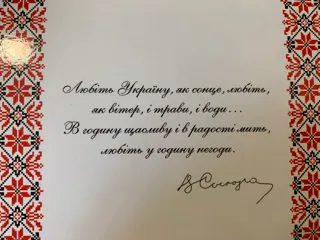 Любіть Україну, як сонце, любіть,
як вітер, і трави, і води...
В годину щасливу і в радості мить,
любіть у годину негоди.
В Сосюра